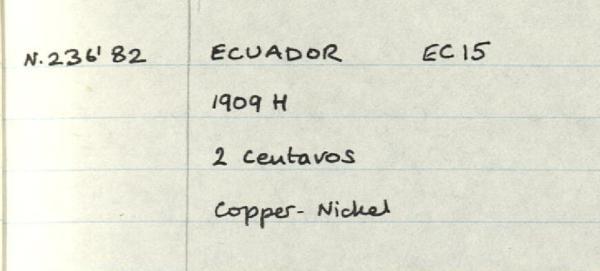 N.236'82 ECUADOR EC15
1909 H
2 Centavos
Copper-Nickel